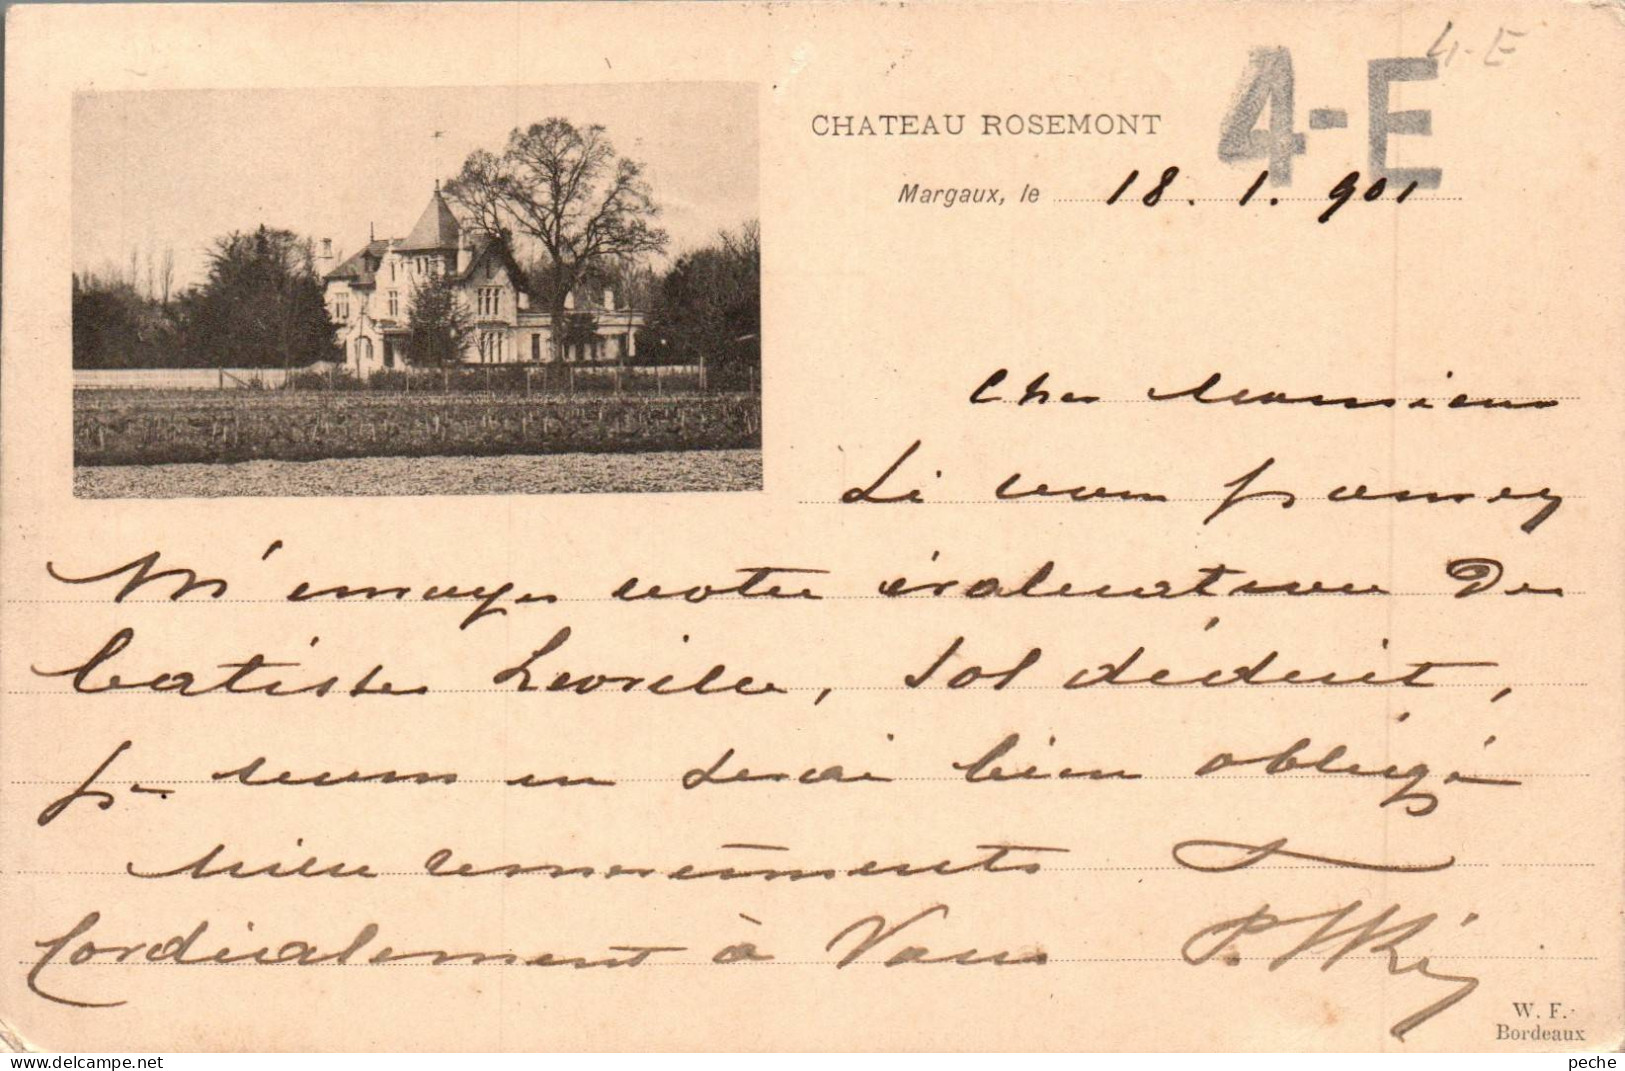 4-E
4-E
CHATEAU ROSEMONT
Margaux, le 18.1.901
Cher Monsieur
Si vous pouvez
m'envoyer votre évaluation de
batisse, sol déduit,
je vous en serai bien obligé
Mille remerciements &
Cordialement à Vous
W. F.
Bordeaux
peche